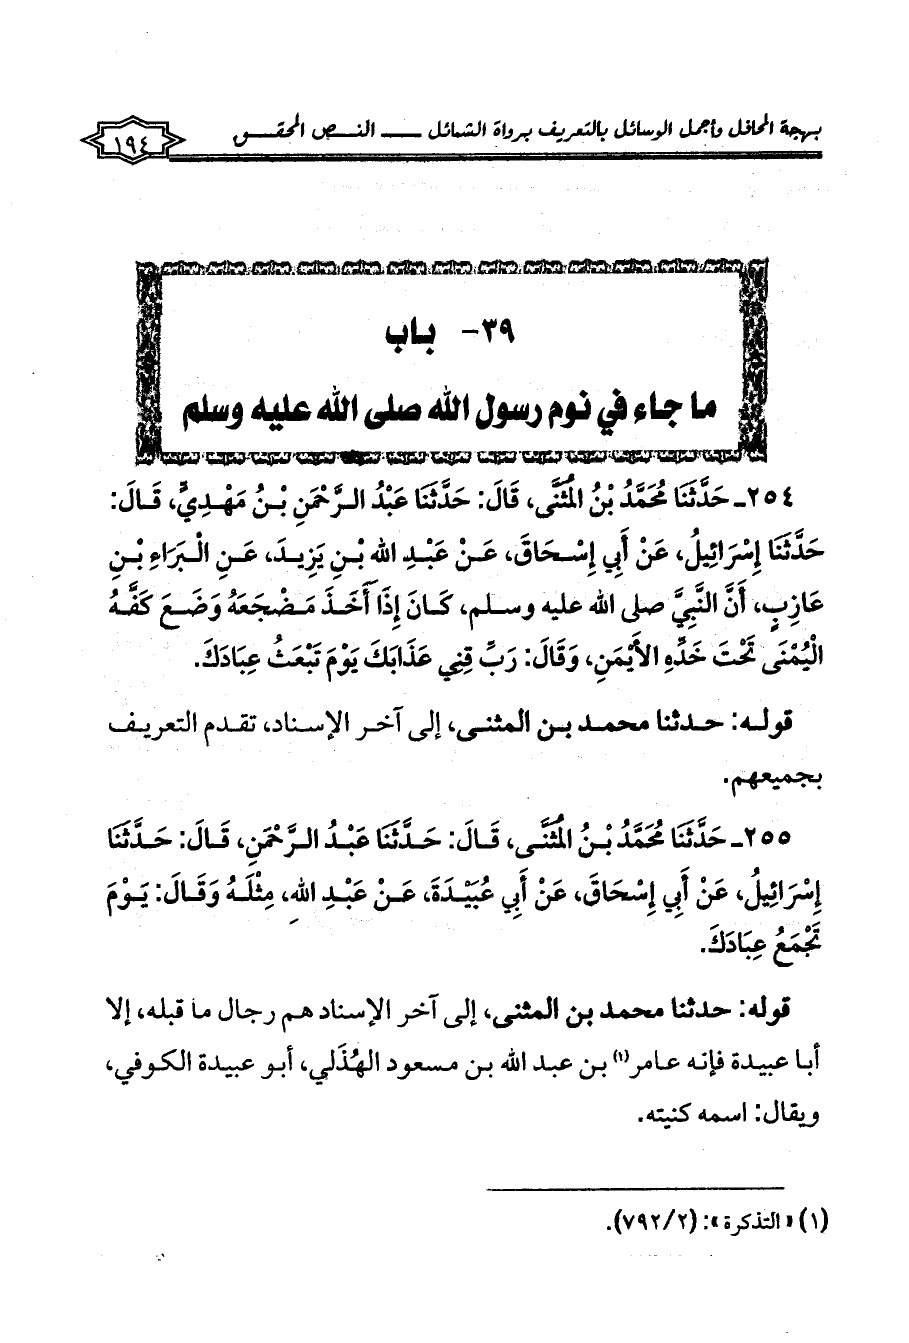 بهجة المحافل وأجمل الوسائل بالتعريف برواة الشمائل ـــــ النــص المحقــق
١٩٤
٣٩- باب
ما جاء في نوم رسول الله صلى الله عليه وسلم
٢٥٤ـ حَدَّثَنَا مُحَمَّدُ بْنُ الْمُثَنَّى، قَالَ: حَدَّثَنَا عَبْدُ الـرَّحْمَنِ بْـنُ مَهْـدِيٍّ، قَـالَ:
حَدَّثَنَا إِسْرَائِيلُ، عَنْ أَبِي إِسْـحَاقَ، عَـنْ عَبْـدِ الله بْـنِ يَزِيـدَ، عَـنِ الْـبَرَاءِ بْـنِ
عَازِبٍ، أَنَّ النَّبِيَّ صلى الله عليه وسـلم، كَـانَ إِذَا أَخَـذَ مَـضْجَعَهُ وَضَـعَ كَفَّـهُ
الْيُمْنَى تَحْتَ خَدِّهِ الأَيْمَنِ، وَقَالَ: رَبِّ قِنِي عَذَابَكَ يَوْمَ تَبْعَثُ عِبَادَكَ.
قولـه: حـدثنا محمـد بـن المثنـى، إلى آخـر الإسـناد، تقـدم التعريـف
بجميعهم.
٢٥٥ـ حَدَّثَنَا مُحَمَّدُ بْـنُ الْمُثَنَّى، قَـالَ: حَـدَّثَنَا عَبْـدُ الـرَّحْمَنِ، قَـالَ: حَـدَّثَنَا
إِسْرَائِيلُ، عَنْ أَبِي إِسْحَاقَ، عَنْ أَبِي عُبَيْـدَةَ، عَـنْ عَبْـدِ الله، مِثْلَـهُ وَقَـالَ: يَـوْمَ
تَجْمَعُ عِبَادَكَ.
قوله: حدثنا محمد بن المثنى، إلى آخر الإسناد هم رجال ما قبله، إلا
أبا عبيدة فإنه عامر(١) بن عبد الله بن مسعود الهُذَلي، أبو عبيدة الكوفي،
ويقال: اسمه كنيته.
(١) «التذكرة»: (٢/ ٧٩٢).